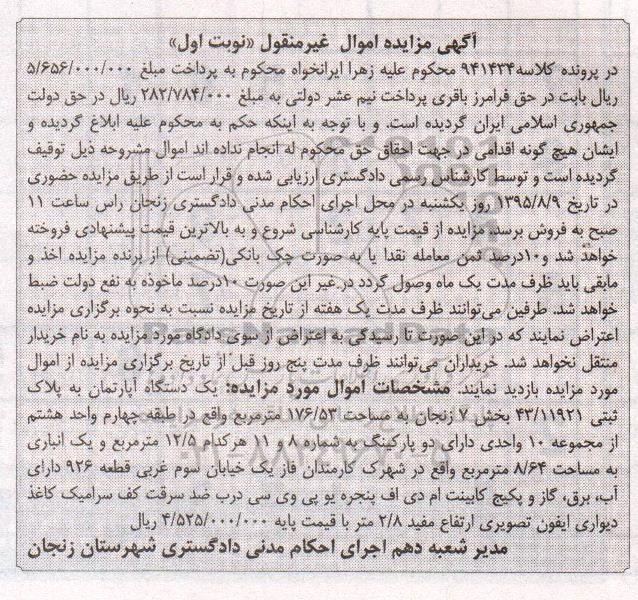 آگهی مزایده اموال غیرمنقول «نوبت اول»
در پرونده کلاسه ۹۴۱۴۳۴ محکوم علیه زهرا ایرانخواه محکوم به پرداخت مبلغ ۵/۶۵۶/۰۰۰/۰۰۰
ریال بابت در حق فرامرز باقری پرداخت نیم عشر دولتی به مبلغ ۲۸۲/۷۸۴/۰۰۰ ریال در حق دولت
جمهوری اسلامی ایران گردیده است. و با توجه به اینکه حکم به محکوم علیه ابلاغ گردیده و
ایشان هیچ گونه اقدامی در جهت احقاق حق محکوم له انجام نداده اند اموال مشروحه ذیل توقیف
گردیده است و توسط کارشناس رسمی دادگستری ارزیابی شده و قرار است از طریق مزایده حضوری
در تاریخ ۱۳۹۵/۸/۹ روز یکشنبه در محل اجرای احکام مدنی دادگستری زنجان راس ساعت ۱۱
صبح به فروش برسد. مزایده از قیمت پایه کارشناسی شروع و به بالاترین قیمت پیشنهادی فروخته
خواهد شد و۱۰درصد ثمن معامله نقدا یا به صورت چک بانکی(تضمینی) از برنده مزایده اخذ و
مابقی باید ظرف مدت یک ماه وصول گردد در غیر این صورت ۱۰درصد ماخوذه به نفع دولت ضبط
خواهد شد. طرفین می‌توانند ظرف مدت یک هفته از تاریخ مزایده نسبت به نحوه برگزاری مزایده
اعتراض نمایند که در این صورت تا رسیدگی به اعتراض از سوی دادگاه مورد مزایده به نام خریدار
منتقل نخواهد شد. خریداران می‌توانند ظرف مدت پنج روز قبل از تاریخ برگزاری مزایده از اموال
مورد مزایده بازدید نمایند. مشخصات اموال مورد مزایده: یک دستگاه آپارتمان به پلاک
ثبتی ۴۳/۱۱۹۲۱ بخش ۷ زنجان به مساحت ۱۷۶/۵۳ مترمربع واقع در طبقه چهارم واحد هشتم
از مجموعه ۱۰ واحدی دارای دو پارکینگ به شماره ۸ و ۱۱ هرکدام ۱۲/۵ مترمربع و یک انباری
به مساحت ۸/۶۴ مترمربع واقع در شهرک کارمندان فاز یک خیابان سوم غربی قطعه ۹۲۶ دارای
آب، برق، گاز و پکیج کابینت ام دی اف پنجره یو پی وی سی درب ضد سرقت کف سرامیک کاغذ
دیواری ایفون تصویری ارتفاع مفید ۲/۸ متر با قیمت پایه ۴/۵۲۵/۰۰۰/۰۰۰ ریال
مدیر شعبه دهم اجرای احکام مدنی دادگستری شهرستان زنجان